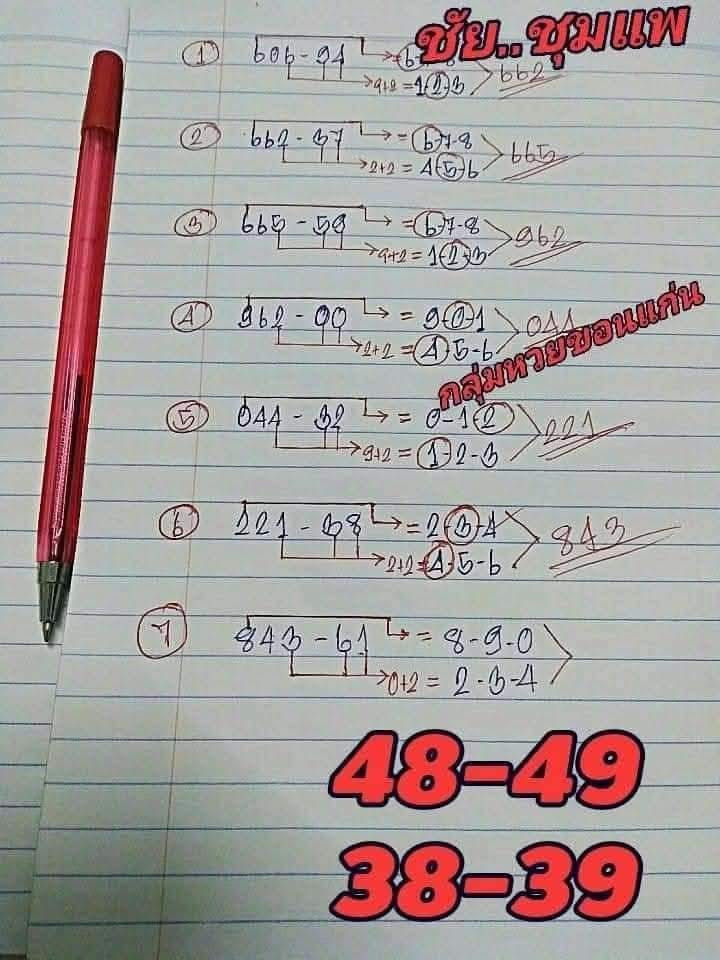 ชัย..ชุมแพ
① 606 - 94 → = 6
9+2 = 1-2-3 662
② 662 - 37 → = 6-7-8
2+2 = 4-5-6 665
③ 665 - 59 → = 6-7-8
9+2 = 1-2-3 962
④ 962 - 00 → = 9-0-1
2+2 = 4-5-6 044
กลุ่มหวยขอนแก่น
⑤ 044 - 32 → = 0-1-2
9+2 = 1-2-3 221
⑥ 221 - 38 → = 2-3-4
2+2 = 4-5-6 843
⑦ 843 - 61 → = 8-9-0
0+2 = 2-3-4
48-49
38-39